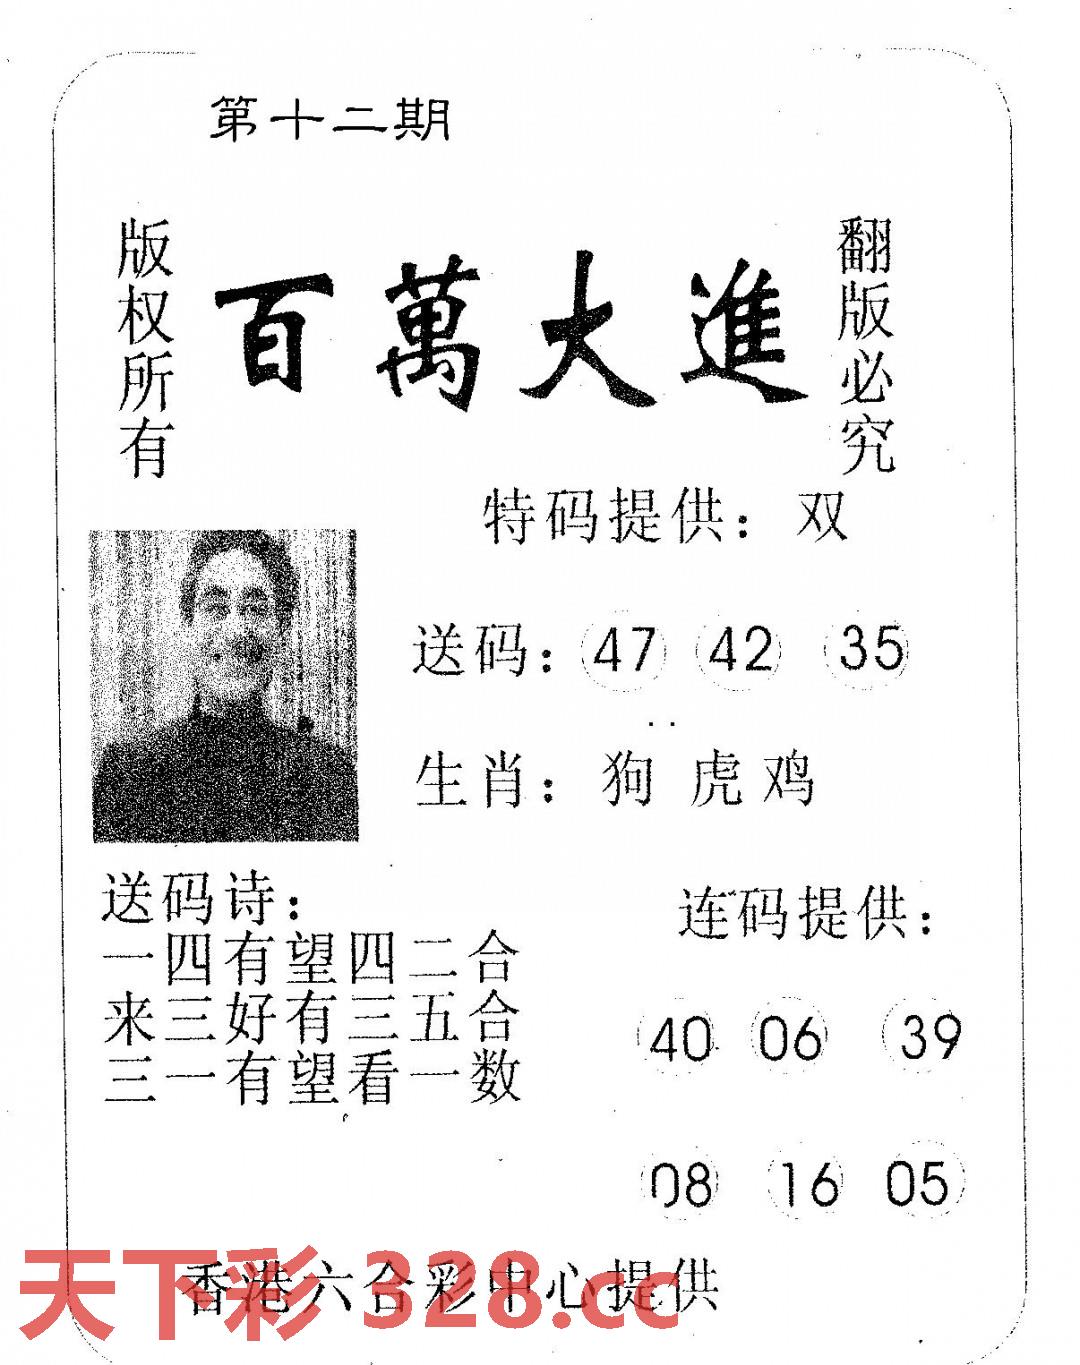 第十二期
版权所有
百萬大進
翻版必究
特码提供：双
送码：47 42 35
生肖：狗 虎 鸡
送码诗：
一四有望四二合
来三好有三五合
三一有望看一数
连码提供：
40 06 39
08 16 05
香港六合彩中心提供
天下彩 328.cc